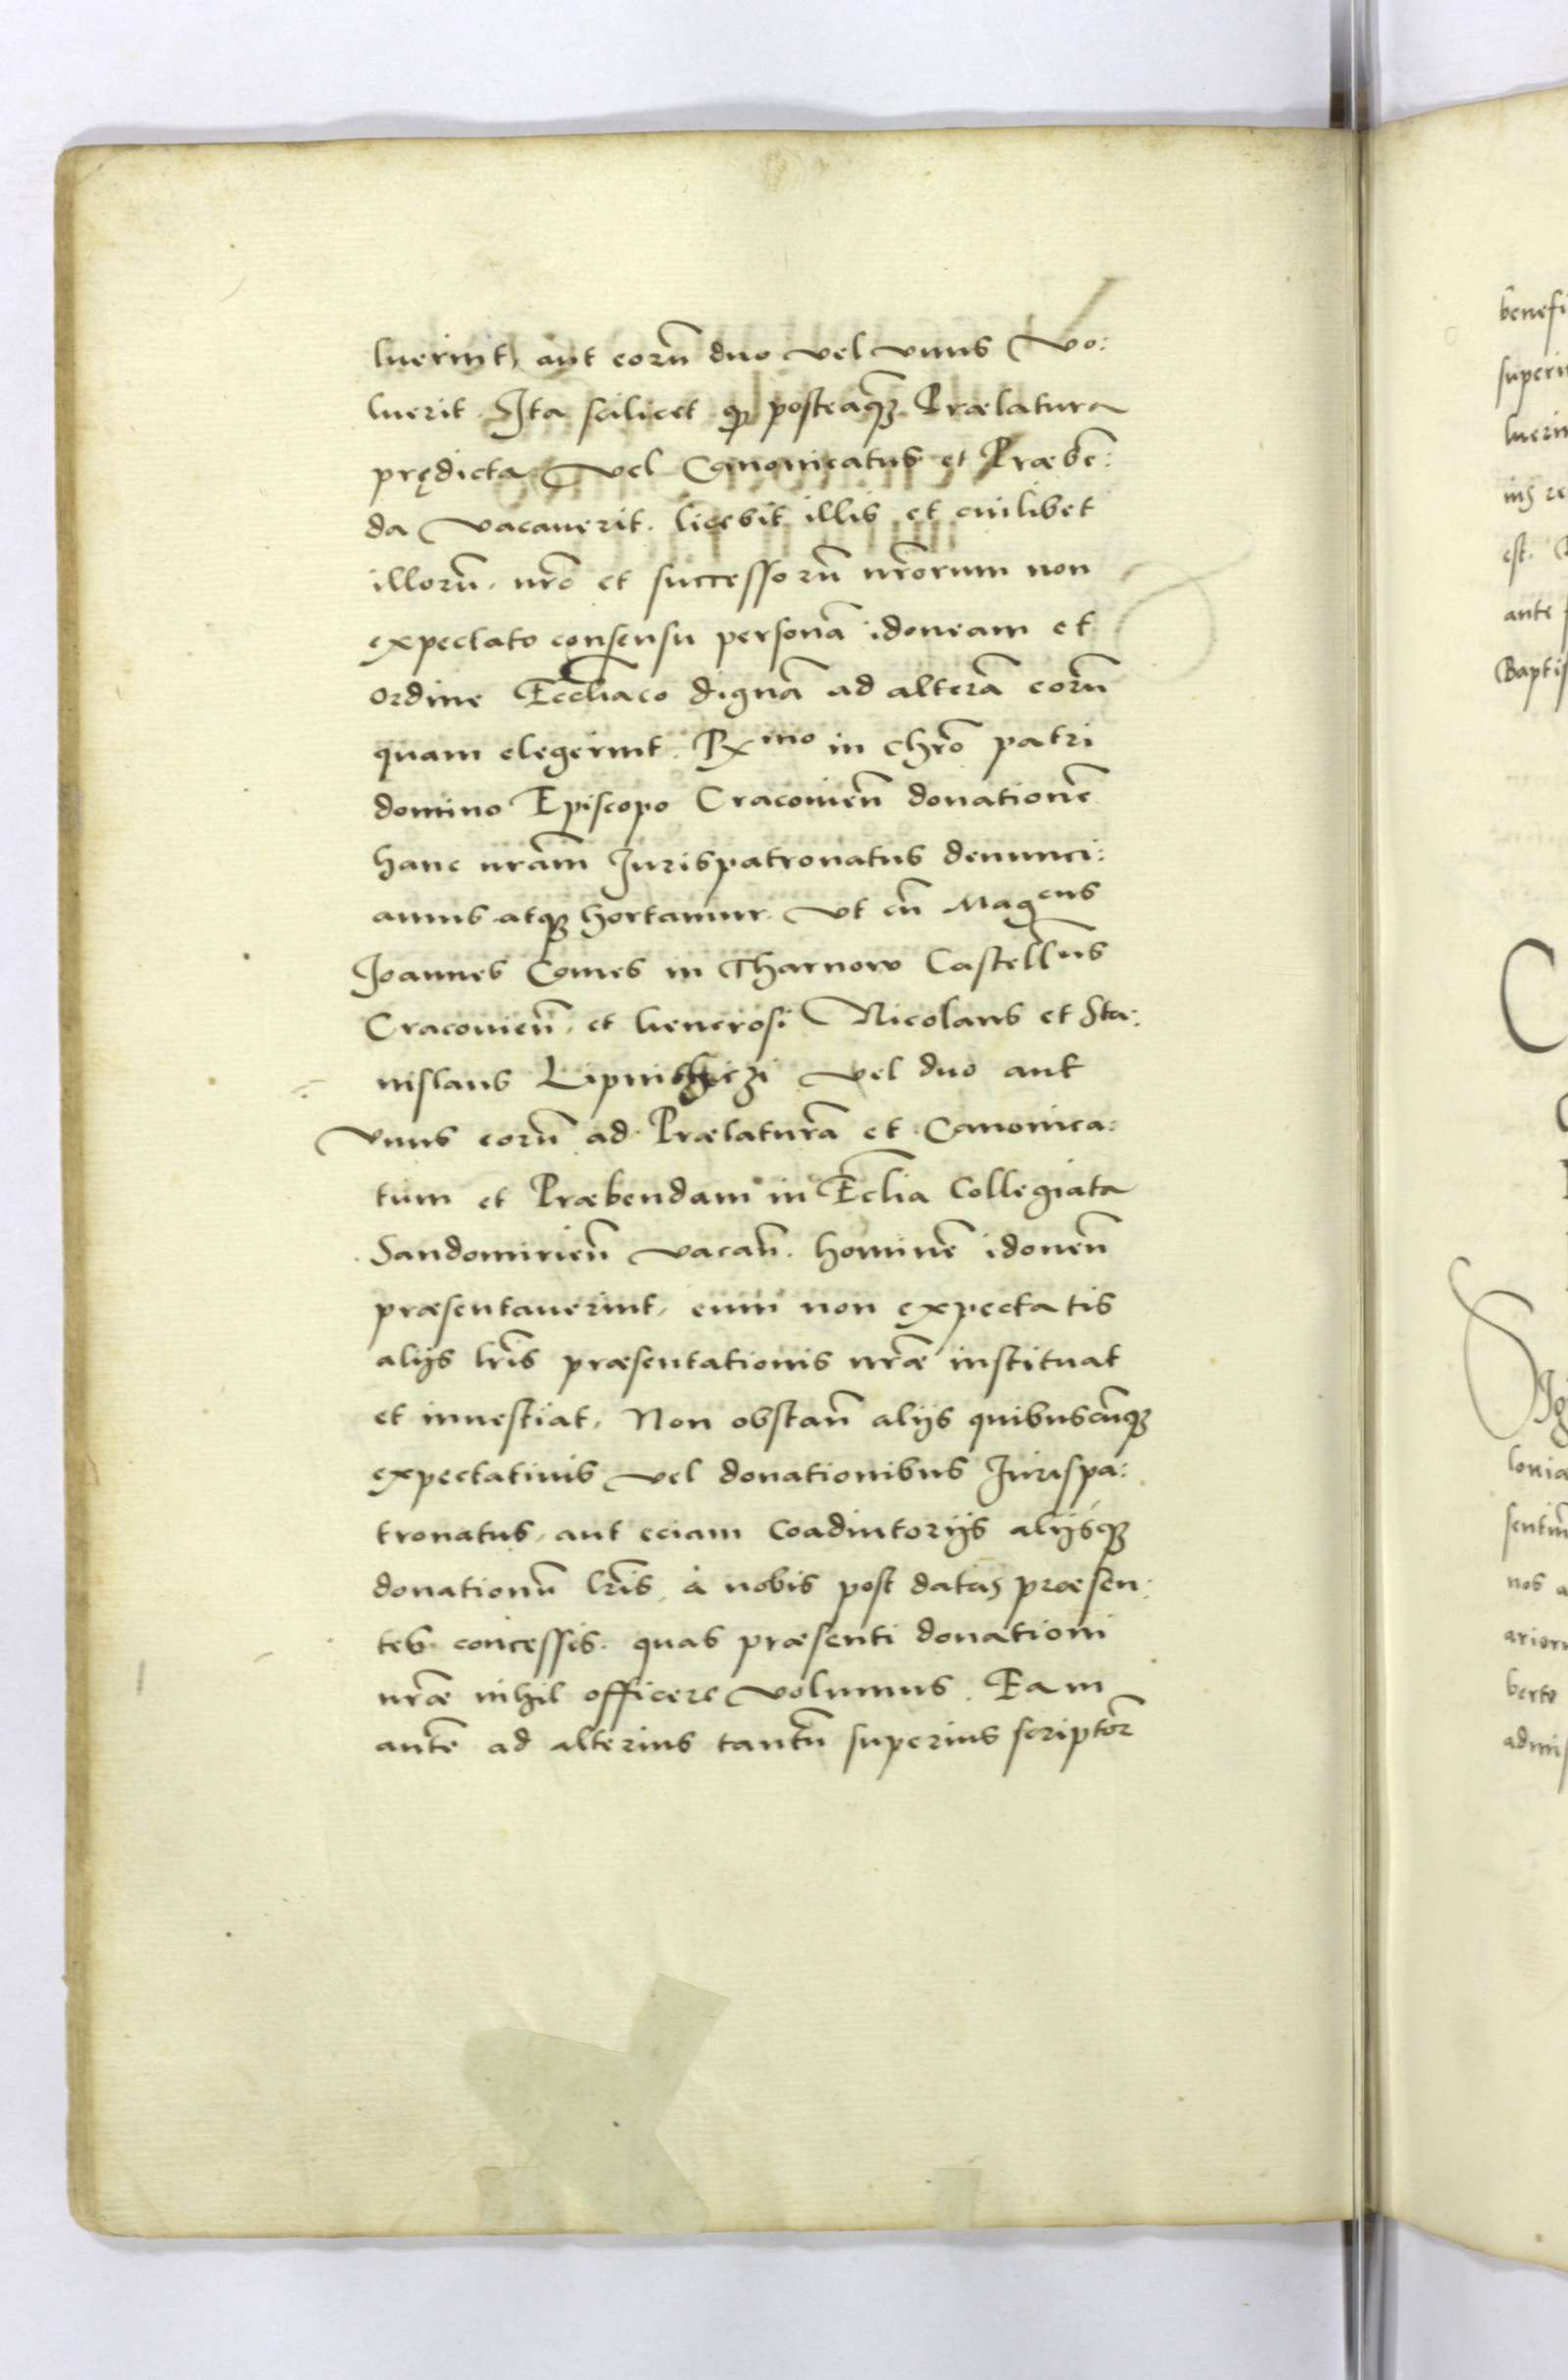 luerint, aut eorū duo vel vnus Vo:
luerit. Ita scilicet qp posteaqȝ Prælatura
prędicta vel Canonicatus et Præbē:
da vacauerit. licebit illis et cuilibet
illorū. nrō et successorū nrōrum non
expectato consensu personā idoneam et
ordine Eccliāco dignā ad alterā eorū
quam elegerint. Rx mo in Chrō patri
domino Episcopo Cracouien̄ donationē
hanc nrām Jurispatronatus denunci:
amus atqȝ hortamur. vt cū Mag cus
Joannes Comes in Tharnow Castelln̄us
Cracouien̄. et Generosi Nicolaus et Sta:
nislaus vel duo aut
vnus eorū ad Prælaturā et Canonica:
tum et Præbendam in Ecclīa Collegiata
Sandomirien̄ vacan̄. hominē idoneū
præsentauerint, eum non expectatis
alijs lrīs præsentationis nrāe instituat
et inuestiat, Non obstan̄ alijs quibuscūqȝ
expectatiuis vel donationibus Jurispa:
tronatus, aut eciam Coadiutorijs alijsqȝ
donationū lrīs, à nobis post datas præsen:
tes concessis. quas præsenti donationi
nrāe nihil officere volumus. Eam
autē ad alterius tantū superius scriptor̄
benefi
luerin
est.
ante
Baptis
C
lonia
nos a
berto
admis